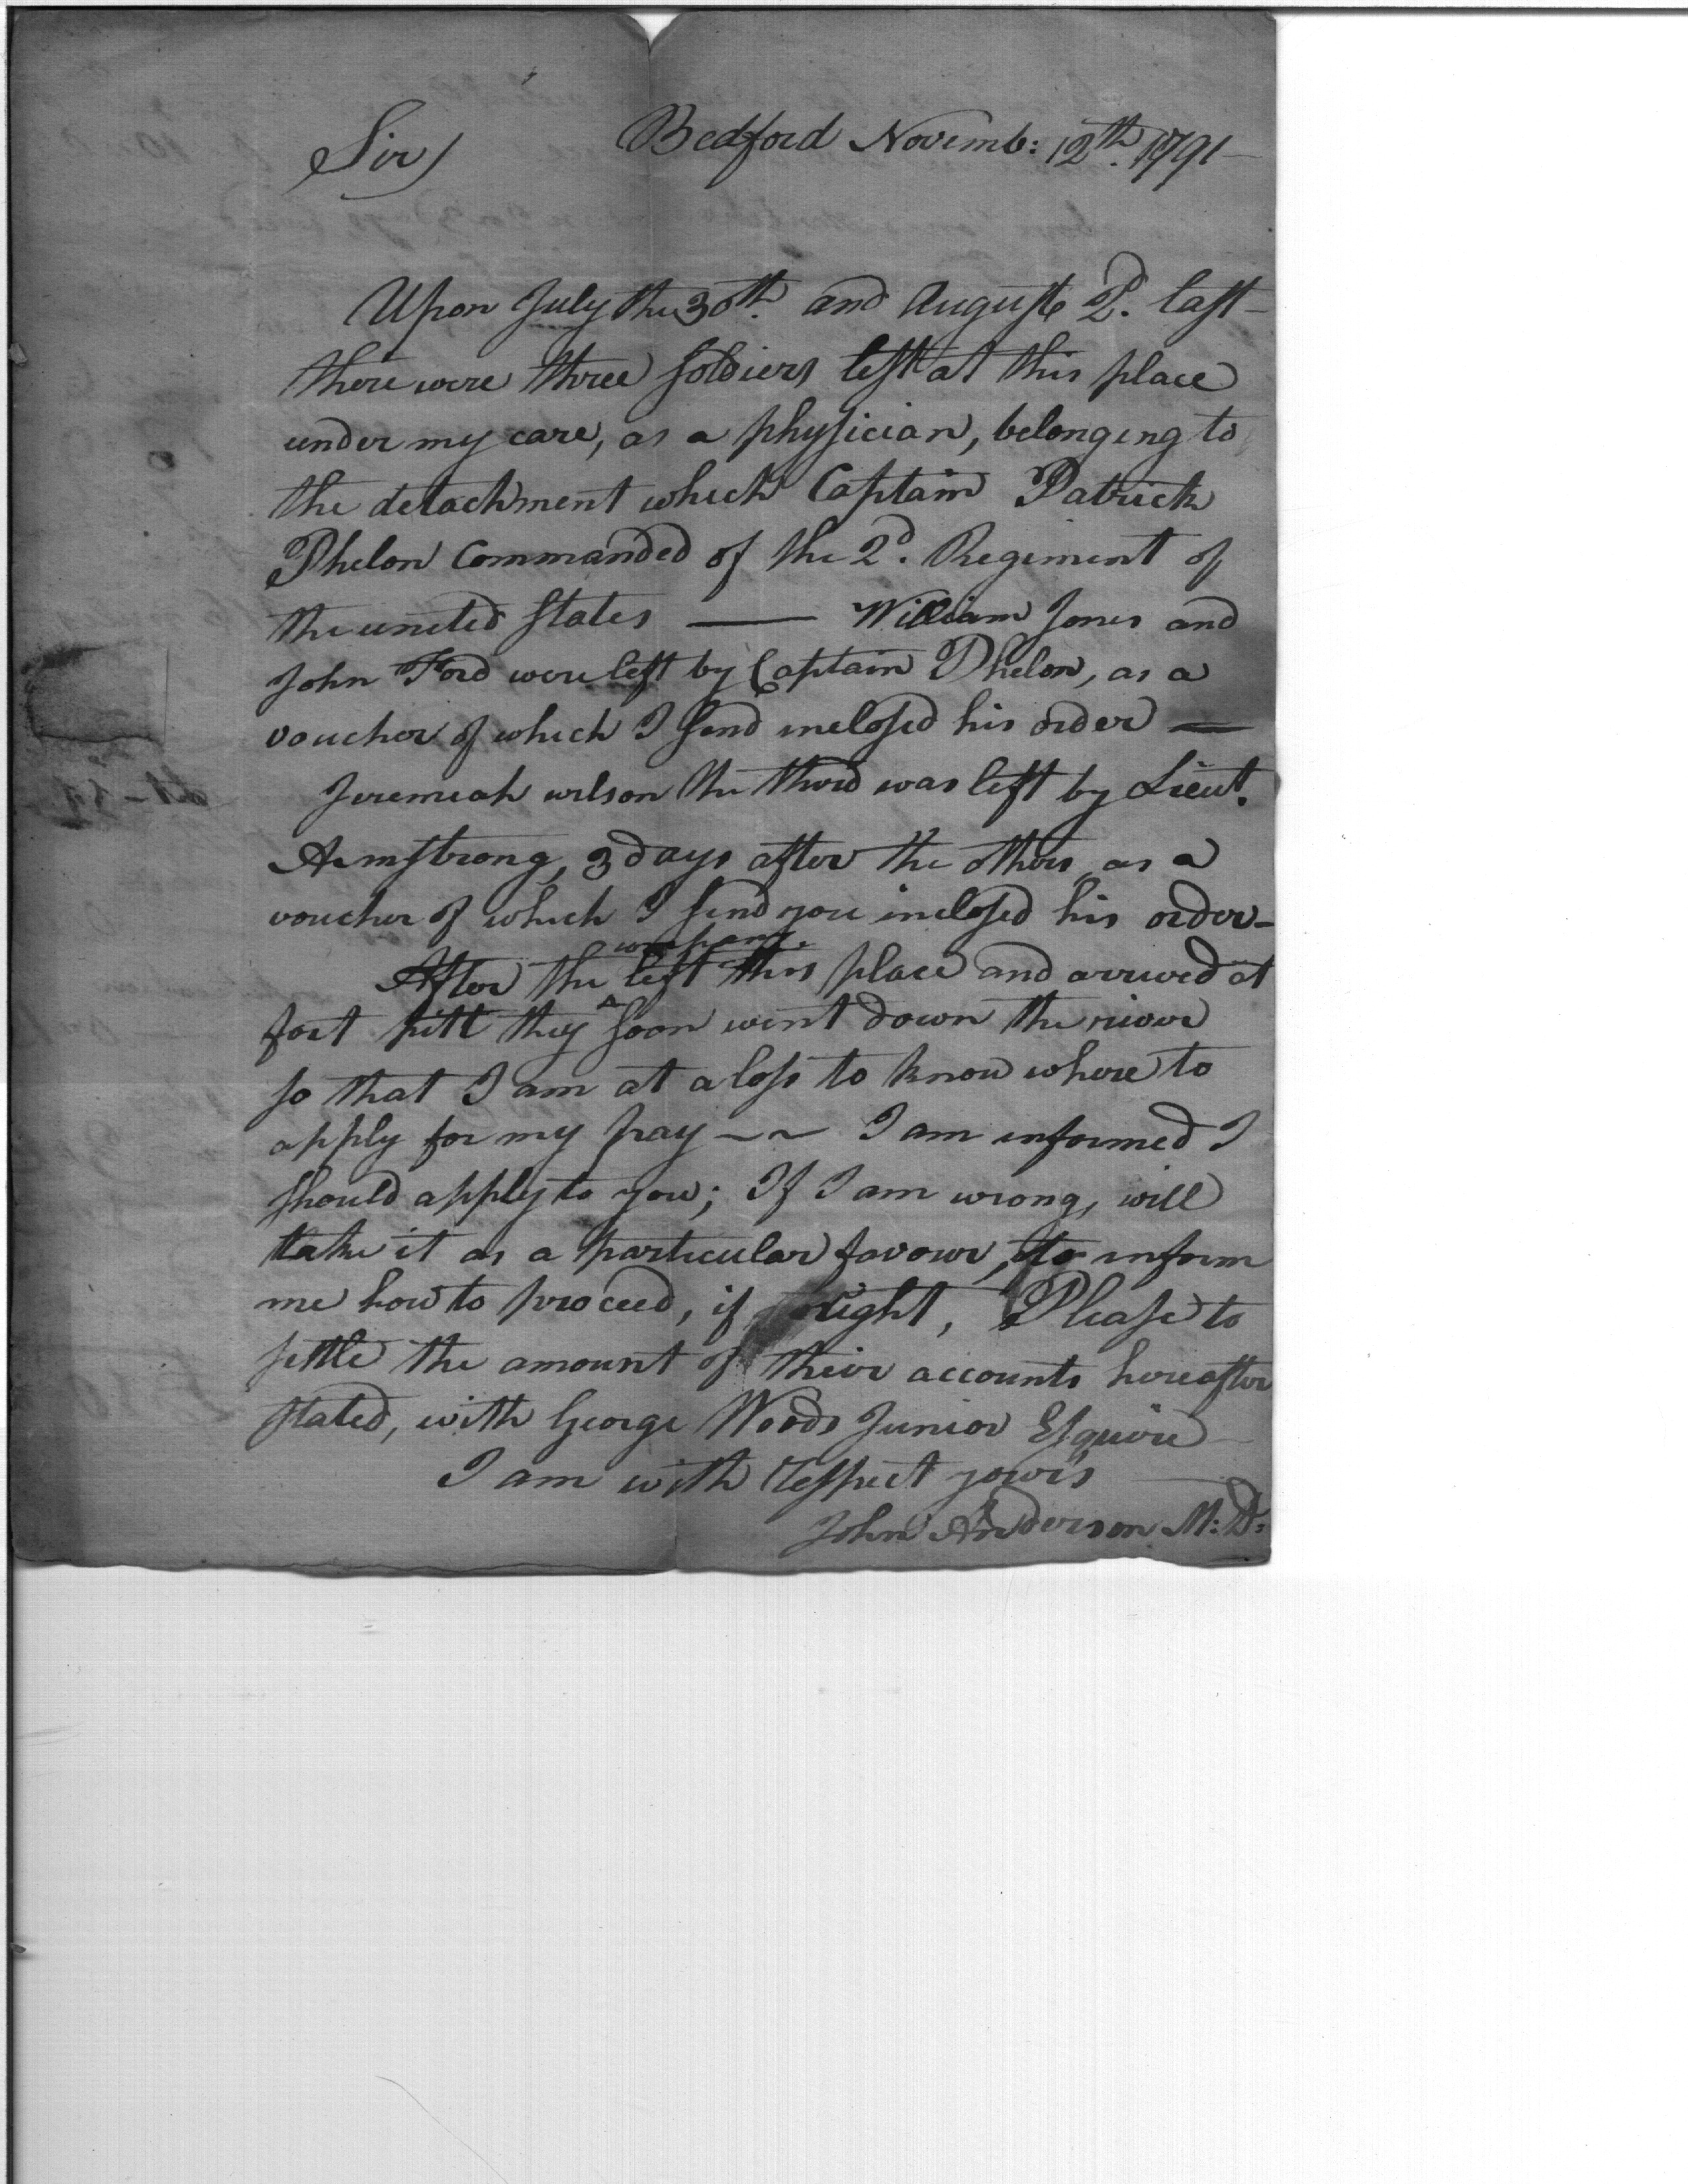 Sir) Bedford Novemb: 12th. 1791 —
Upon July the 30th. and August 2d. last —
there were three soldiers left at this place
under my care, as a physician, belonging to
the detachment which Captain Patrick
Phelon Commanded of the 2d. Regiment of
the united States —— William Jones and
John Ford were left by Captain Phelon, as a
voucher of which I send inclosed his order —
Jeremiah wilson the third was left by Lieut.
Armstrong, 3 days after the others, as a
voucher of which I send you inclosed his order —
company.
After the ^ left this place and arrived at
fort pitt they soon went down the river
so that I am at a loss to know where to
apply for my pay ~ ~ I am informed I
should apply to you; If I am wrong, will
take it as a particular favour, to inform
me how to proceed, if right, Please to
settle the amount of their accounts hereafter
stated, with George Woods Junior Esquire —
I am with respect yours —
John Anderson M: D: